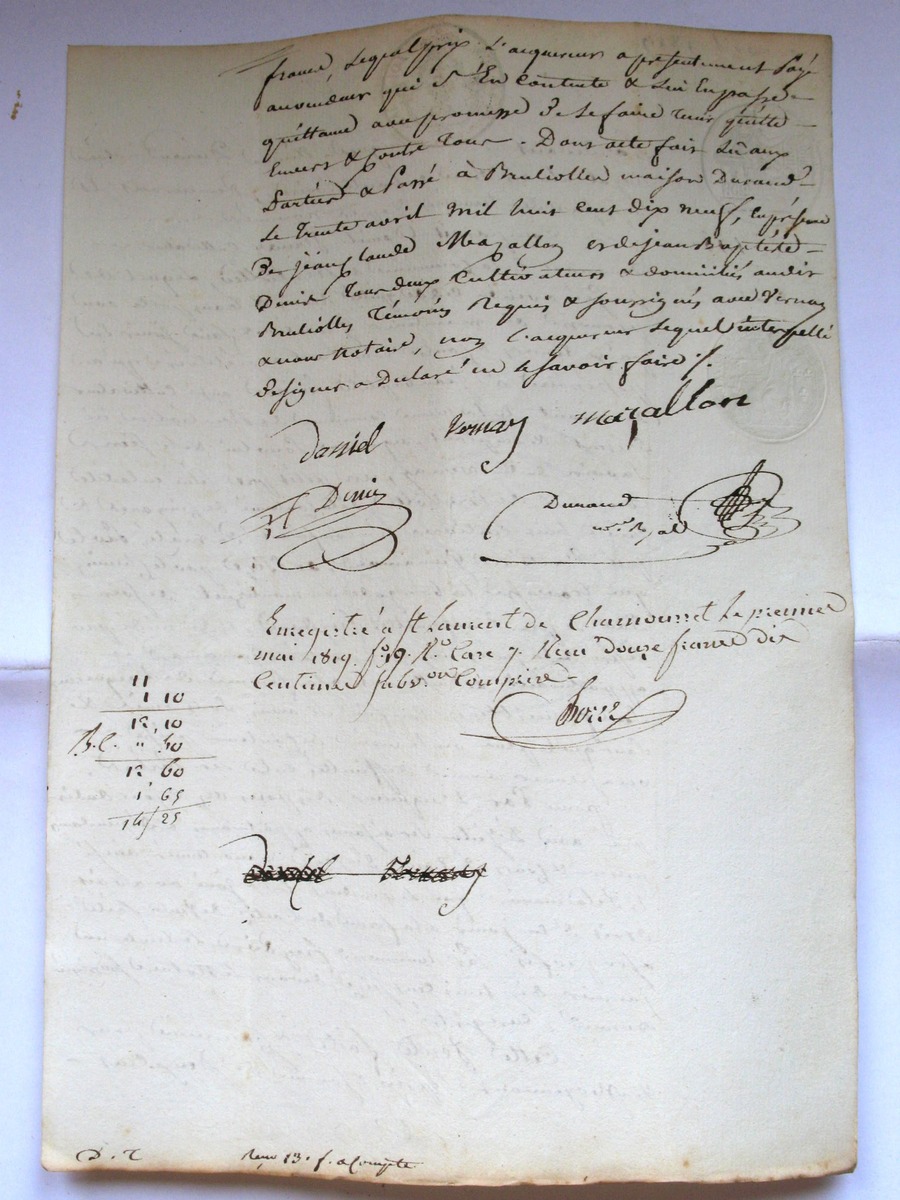 francs, lequel prix l'acquereur a présentement payé
au vendeur qui s'En contente & lui En passe
quittance avec promesse de le faire tenir quitte
Envers & Contre Tous. Dont acte fait lû aux
Parties & Passé à Brulliolles maison Durand
Le Trente avril Mil huit Cent dix neuf, En présence
De jean Claude Mazallon et de jean Baptiste
Denis Tous deux Cultivateurs & domiciliés audit
Brulliolles Témoins Requis & soussignés avec Vernay
& nous Notaire, non l'acquereur lequel interpellé
de signer a Déclaré ne le savoir faire ./.
daniel Vernay mazallon
Denis
Durand
nre Royal
Enregistré à St Laurent de Chamousset le premier
mai 1819. fo. 19. Ro. Case 7. Reçu douze francs dix
Centimes subvon. Comprise
11
1 10
12,10
B.C. " 50
12 60
1 65
14/25
D. T
Reçu 13. f. a Compte